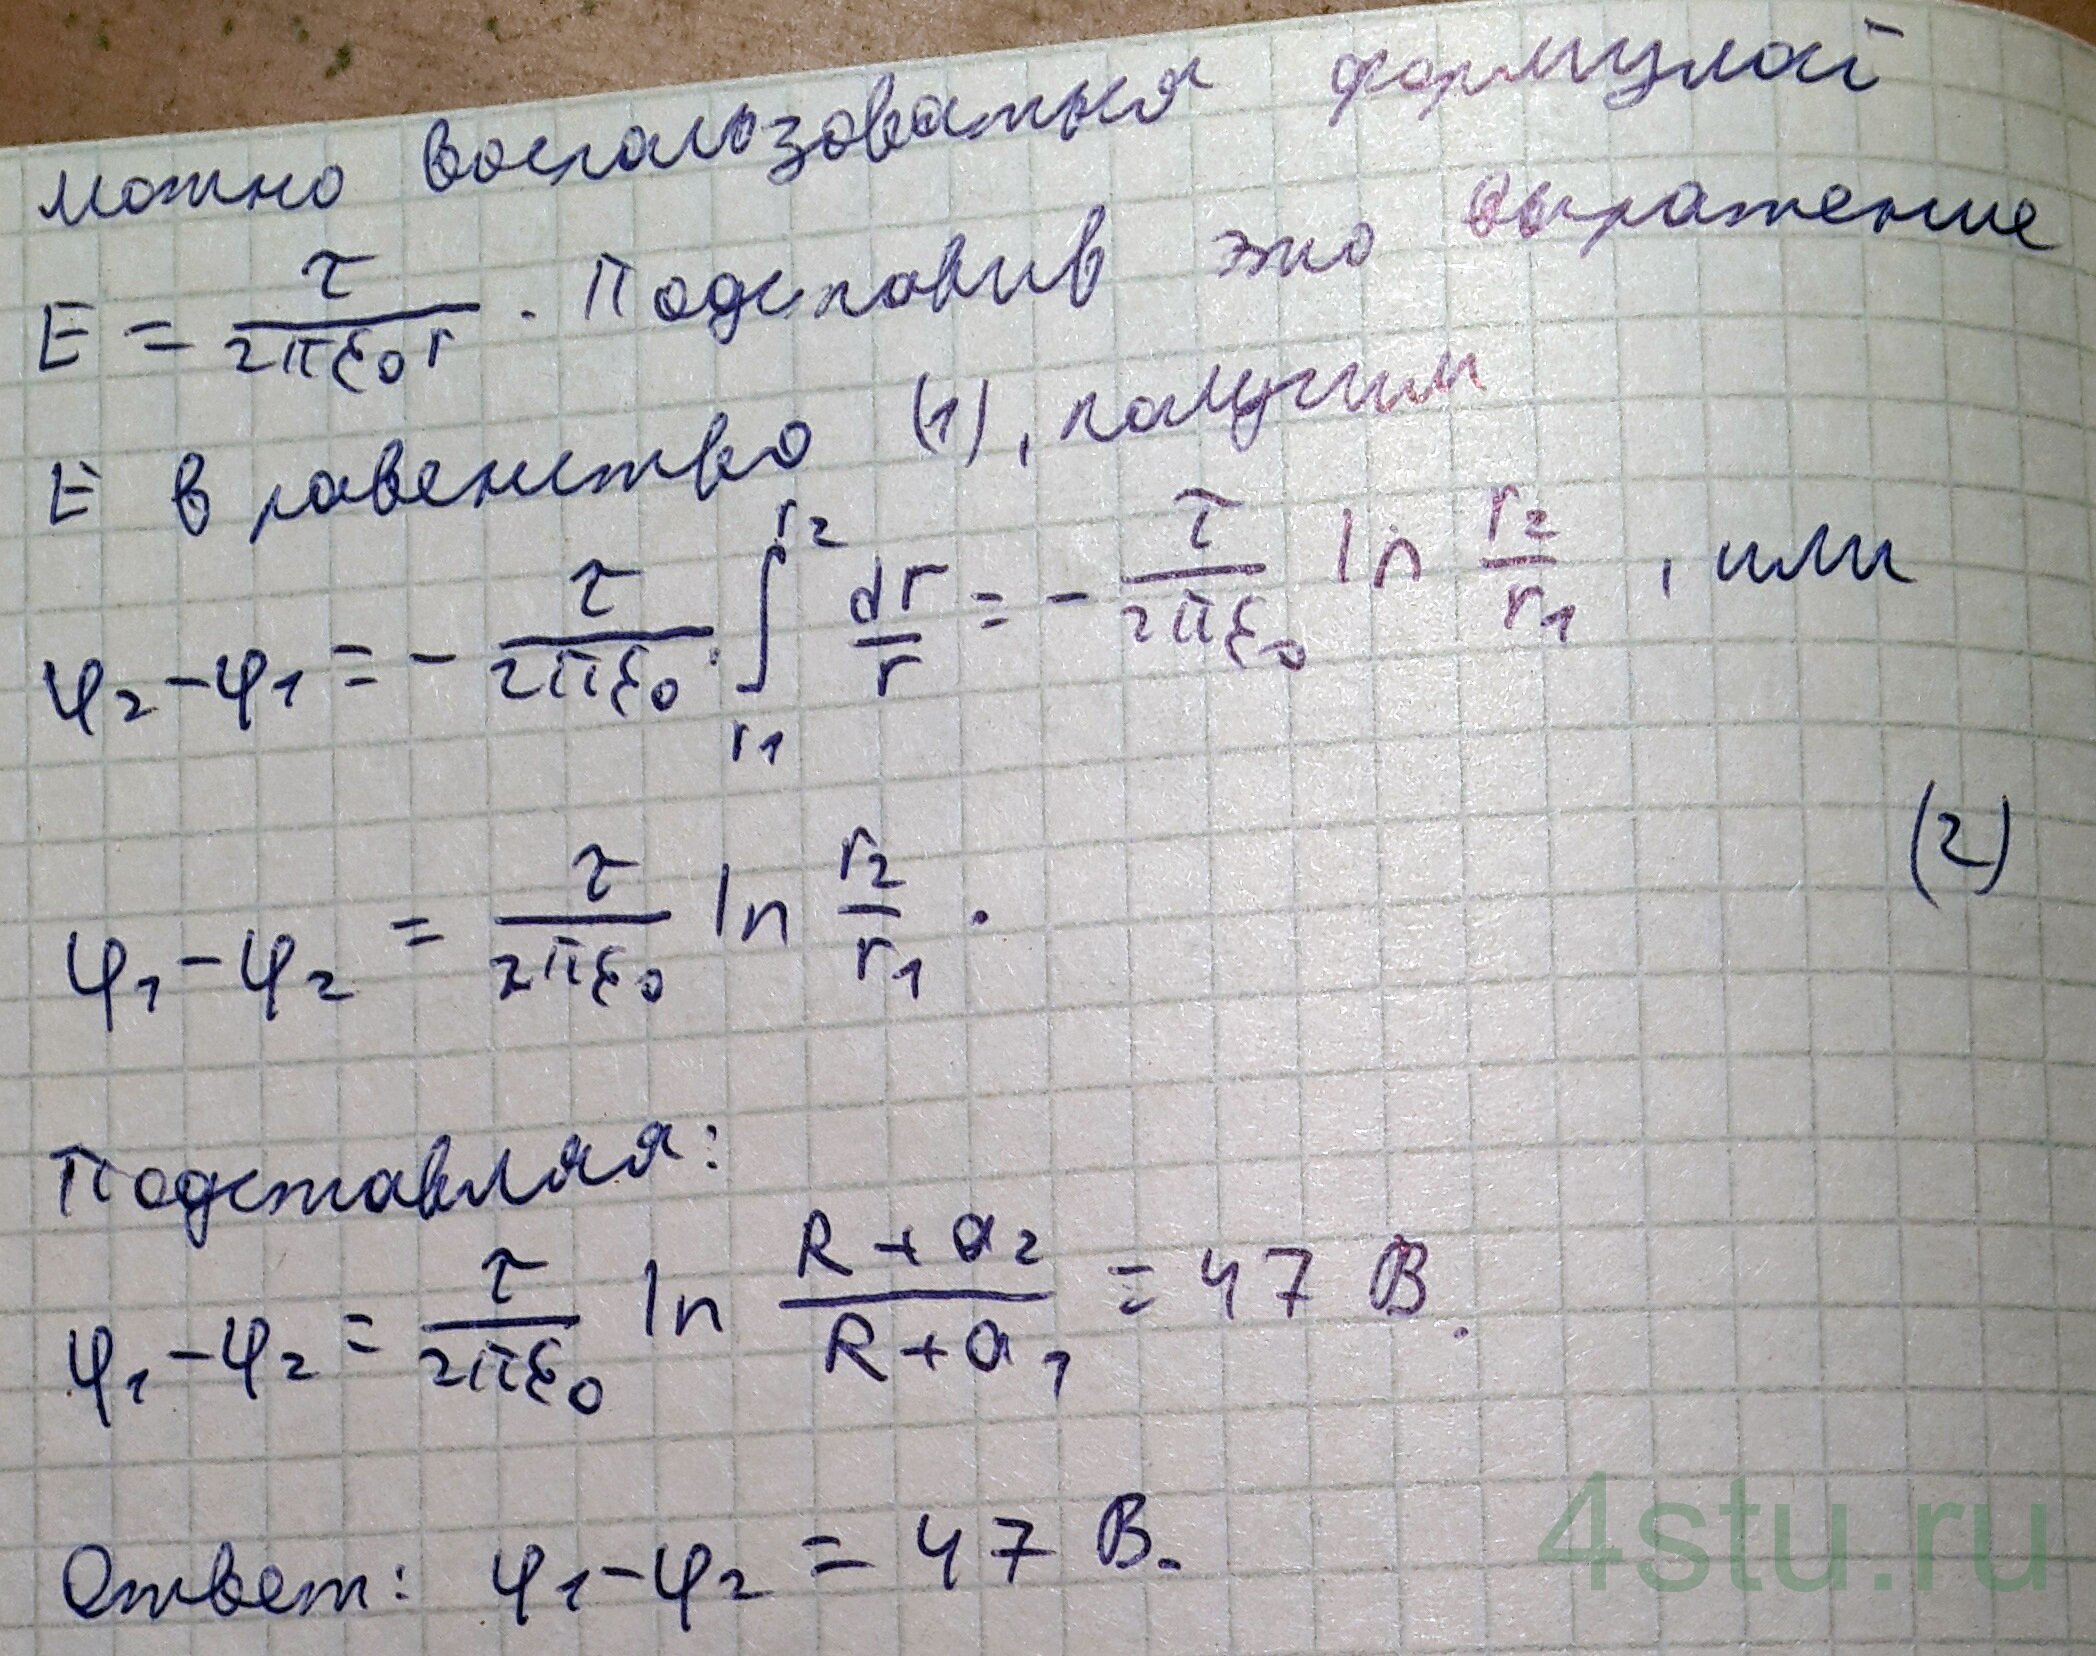 можно воспользоваться формулой
E = τ / 2πε₀r . Подставив это выражение
E в равенство (1), получим
φ₂ − φ₁ = − τ / 2πε₀ · ∫_{r₁}^{r₂} dr / r = − τ / 2πε₀ ln r₂ / r₁ , или
φ₁ − φ₂ = τ / 2πε₀ ln r₂ / r₁ . (2)
Подставляя:
φ₁ − φ₂ = τ / 2πε₀ ln R + a₂ / R + a₁ = 47 В.
Ответ: φ₁ − φ₂ = 47 В.
4stu.ru